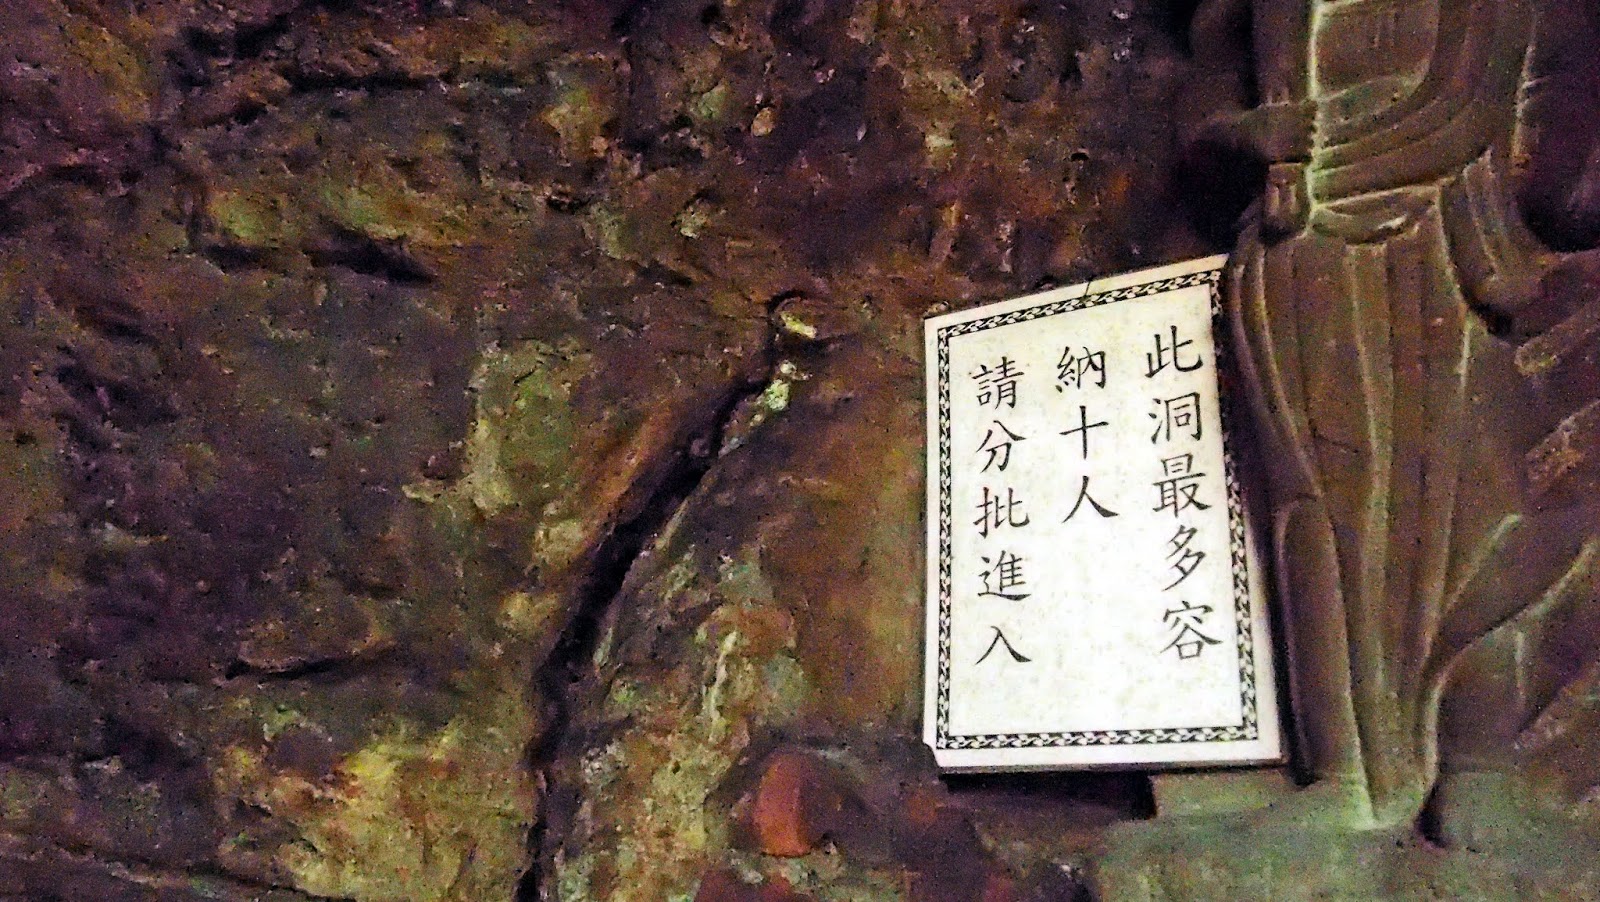 此洞最多容
納十人
請分批進入